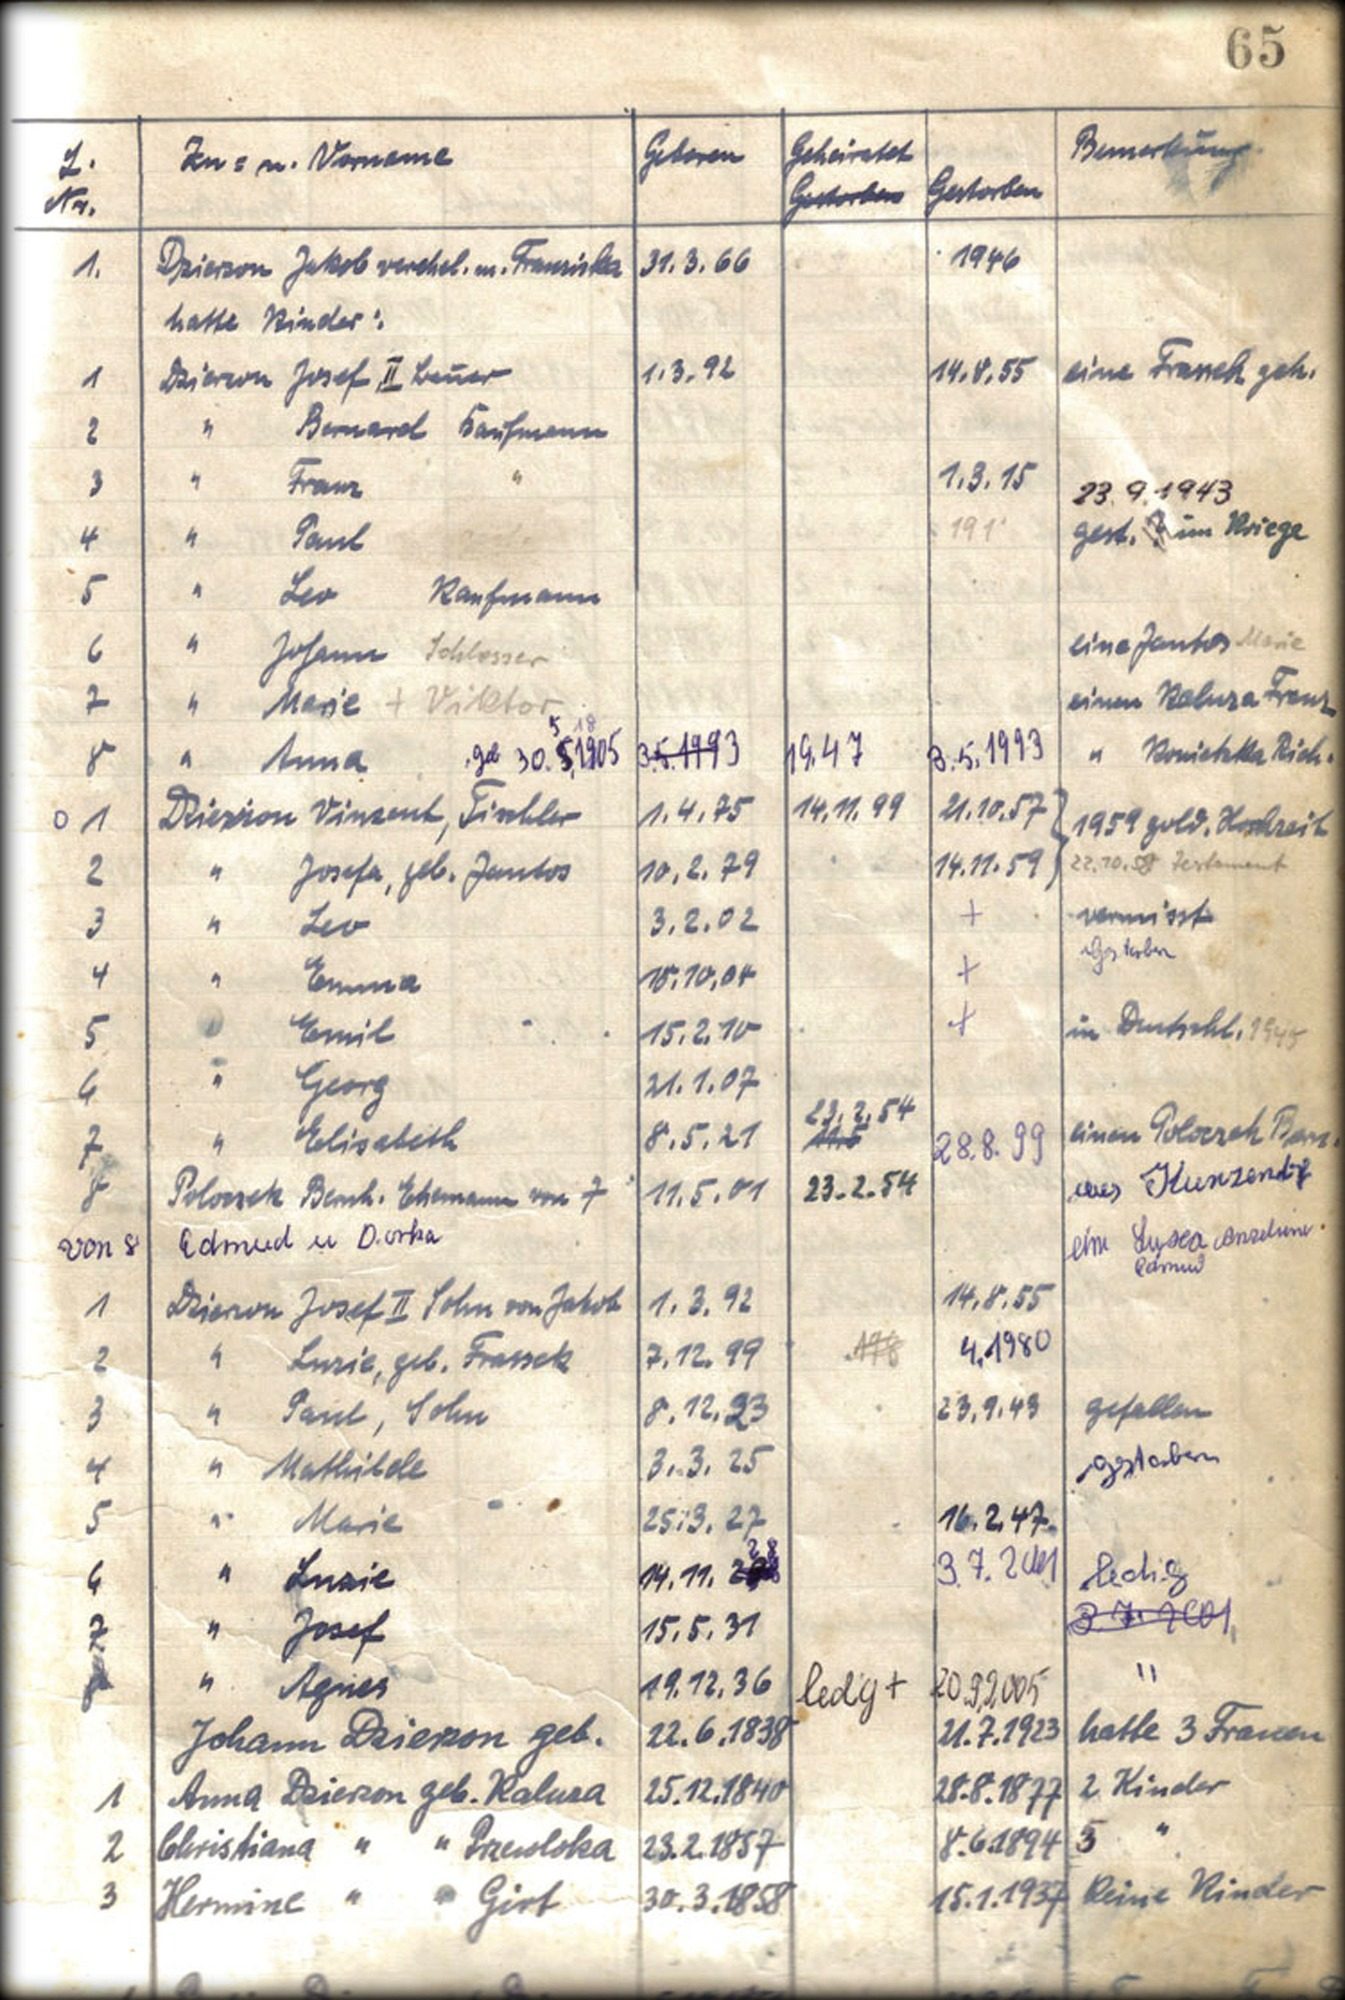 65
L. Nr. Zu= u. Vorname Geboren Geheiratet Gestorben Gestorben Bemerkung
1. Dzierzon Jakob verehel. m. Franziska 31.3.66 1946
hatte Kinder:
1 Dzierzon Josef II Bauer 1.3.92 14.8.55 eine Frassek geh.
2 " Bernard Kaufmann
3 " Franz " 1.3.15 23.9.1943
4 " Paul 191 gest. ? im Kriege
5 " Leo Kaufmann
6 " Johann Schlosser eine Jantos Marie
7 " Marie + Viktor einen Kaluza Franz
8 " Anna geb 30.5.1905 3.5.1993 19.47 3.5.1993 " Konietzka Rich.
0 1 Dzierzon Vinzent, Tischler 1.4.75 14.11.99 21.10.57 1959 gold. Hochzeit
2 " Josefa, geb. Jantos 10.2.79 14.11.59 22.10.58 Testament
3 " Leo 3.2.02 + vermisst
4 " Emma 15.10.04 + Gestorben
5 " Emil 15.2.10 + in Deutschl. 1945
6 " Georg 21.1.07
7 " Elisabeth 8.5.21 23.2.54 11.5 28.8.99 einen Poloczek Bern.
8 Poloczek Bernh. Ehemann von 7 11.5.01 23.2.54 aus Kunzendf
von 8 Edmud u Dorka eine Edmud
1 Dzierzon Josef II Sohn von Jakob 1.3.92 14.8.55
2 " Luzie, geb. Frassek 7.12.99 4.1980
3 " Paul, Sohn 8.12.23 23.9.43 gefallen
4 " Mathilde 3.3.25 gestorben
5 " Marie 25.3.27 16.2.47
6 " Luzie 14.11.28 3.7.2001 ledig
7 " Josef 15.5.31 3.7.2001
8 " Agnes 19.12.36 ledig + 20.9.2005 "
Johann Dzierzon geb. 22.6.1838 21.7.1923 hatte 3 Frauen
1 Anna Dzierzon geb. Kaluza 25.12.1840 28.8.1877 2 Kinder
2 Christiana " " Przewloka 23.2.1857 8.6.1894 5 "
3 Hermine " " Girt 30.3.1858 15.1.1937 keine Kinder